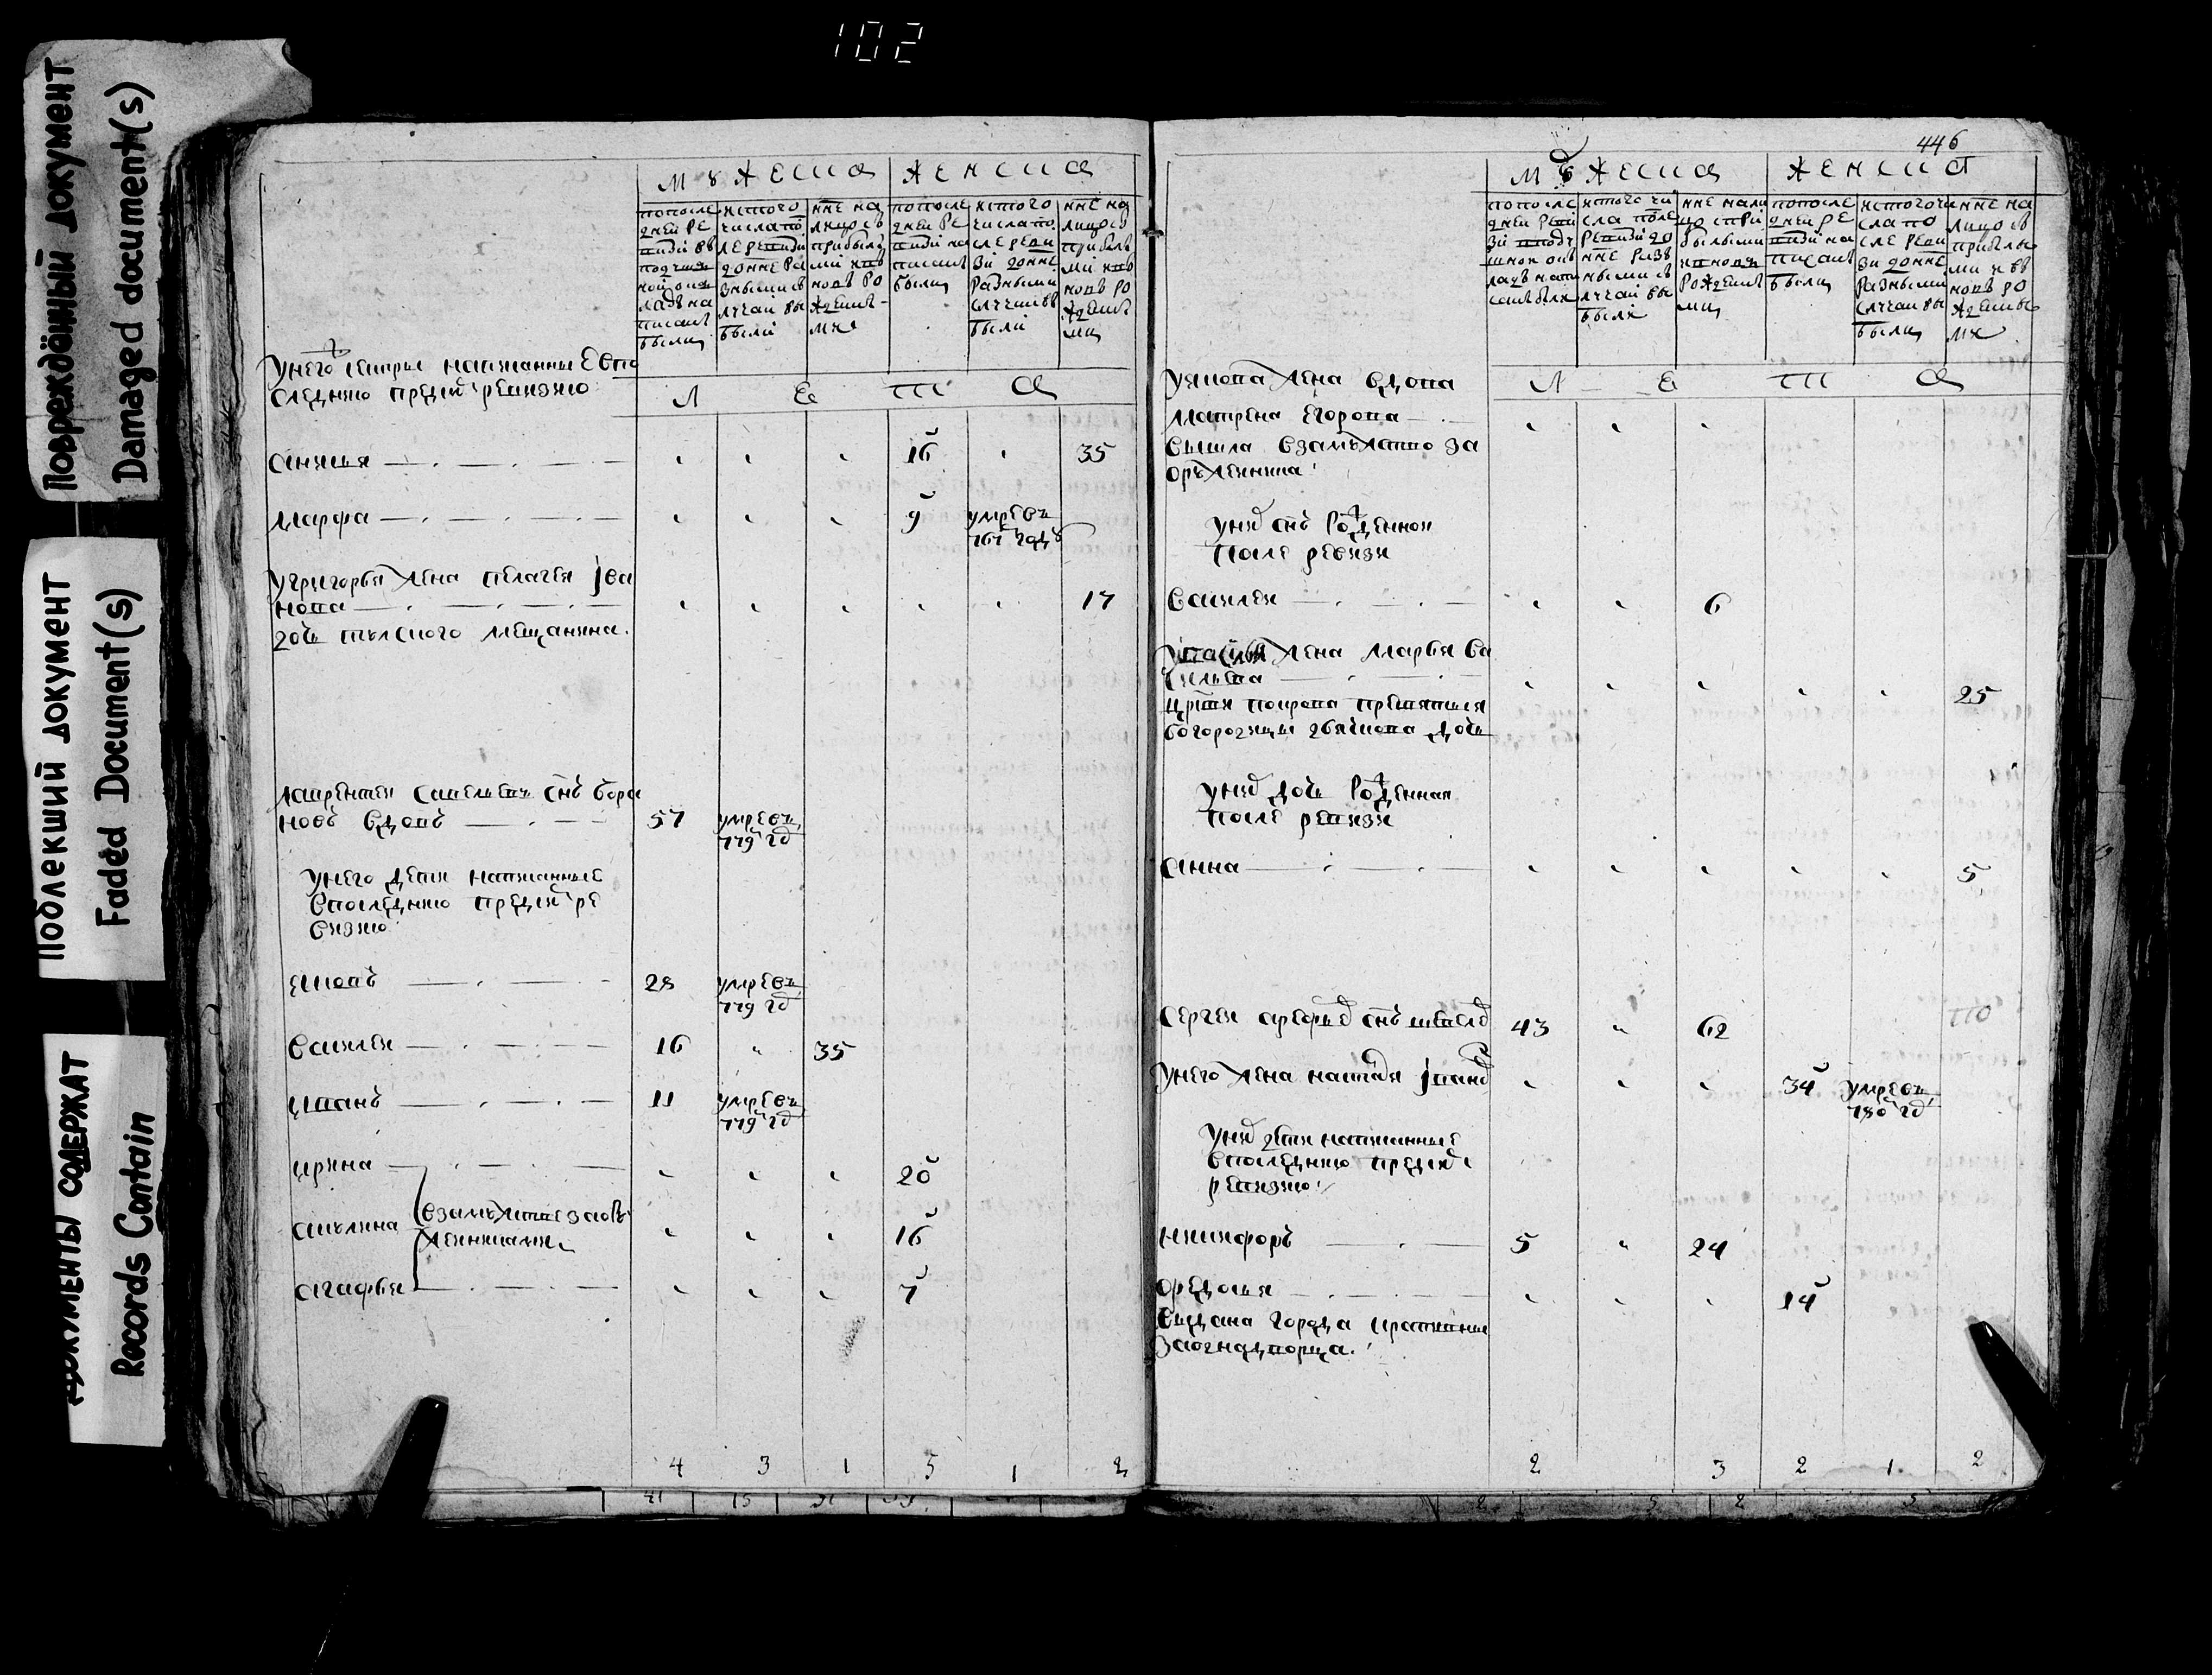 102
Повреждённый документ
Damaged document(s)
Поблекший документ
Faded Document(s)
Документы содержат
Records Contain
Мужеска
Женска
по после
дней ре
визии въ
подушн
ной
ладъ на
писанъ
были
ис того
числа по
ле ревизи
до нне ра
зными сл
учаи вы
были
нне на
лицо съ
прибылы
ми и въ
новь ро
жденны
ми
по после
дней ре
визии на
писаны
были
ис того
числа по
сле реви
зи до нне
разными
случаи вы
были
нне на
лицо съ
прибылы
ми и въ
новь ро
жденны
ми
Л е т а
У него сестры написанны в по
следнюю пред сим ревизию
Анисья 16 35
Марфа 9 умре въ
767 году
У Григорья жена Пелагея Ива
нова 17
дочь тульского мещанина.
Лаврентей Савельевъ снъ Бора
новъ вдовъ 57 умре въ
779 гд
У него дети написанные
в последнюю пред сим ре
визию
Яковъ 28 умре въ
779 гд
Василей 16 35
Иванъ 11 умре въ
779 гд
Ирина 20
Акулина взамужстве за оръ
женниками 16
Агафья 7
4 3 1 5 1 2
446
Мужеска
Женска
по после
дней реви
зи в подъ
шном окъ
ладъ напи
саны были
ис того чи
сла после
ревизи до
нне разъ
ными съ
лучаи вы
были
нне нали
цо с при
былыми
и вновь
рожденны
ми
по после
дней ре
визии на
писаны
были
ис того чи
сла по
сле реви
зи до нне
разными
случаи вы
были
нне на
лицо съ
прибылы
ми и въ
новь ро
жденны
ми
Л е т а
У Якова жена вдова
Матрена Егорова
вышла в замужство за
оруженика
У ней снъ рожденной
после ревизи
Василей 6
У Василья жена Марья Ва
сильева 25
церкви Покрова Пресвятыя
Богородицы дьячкова дочь
У ней дочь рожденная
после ревизи
Анна 5
Сергей Арефьев снъ 43 62
У него жена Настасья Иванов 34 умре въ
780 гд
У ней дети написанные
в последнюю пред сим
ревизию
Никифоръ 5 24
Федосья 14
выдана города Крапивны
за однодворца.
2 3 2 1 2